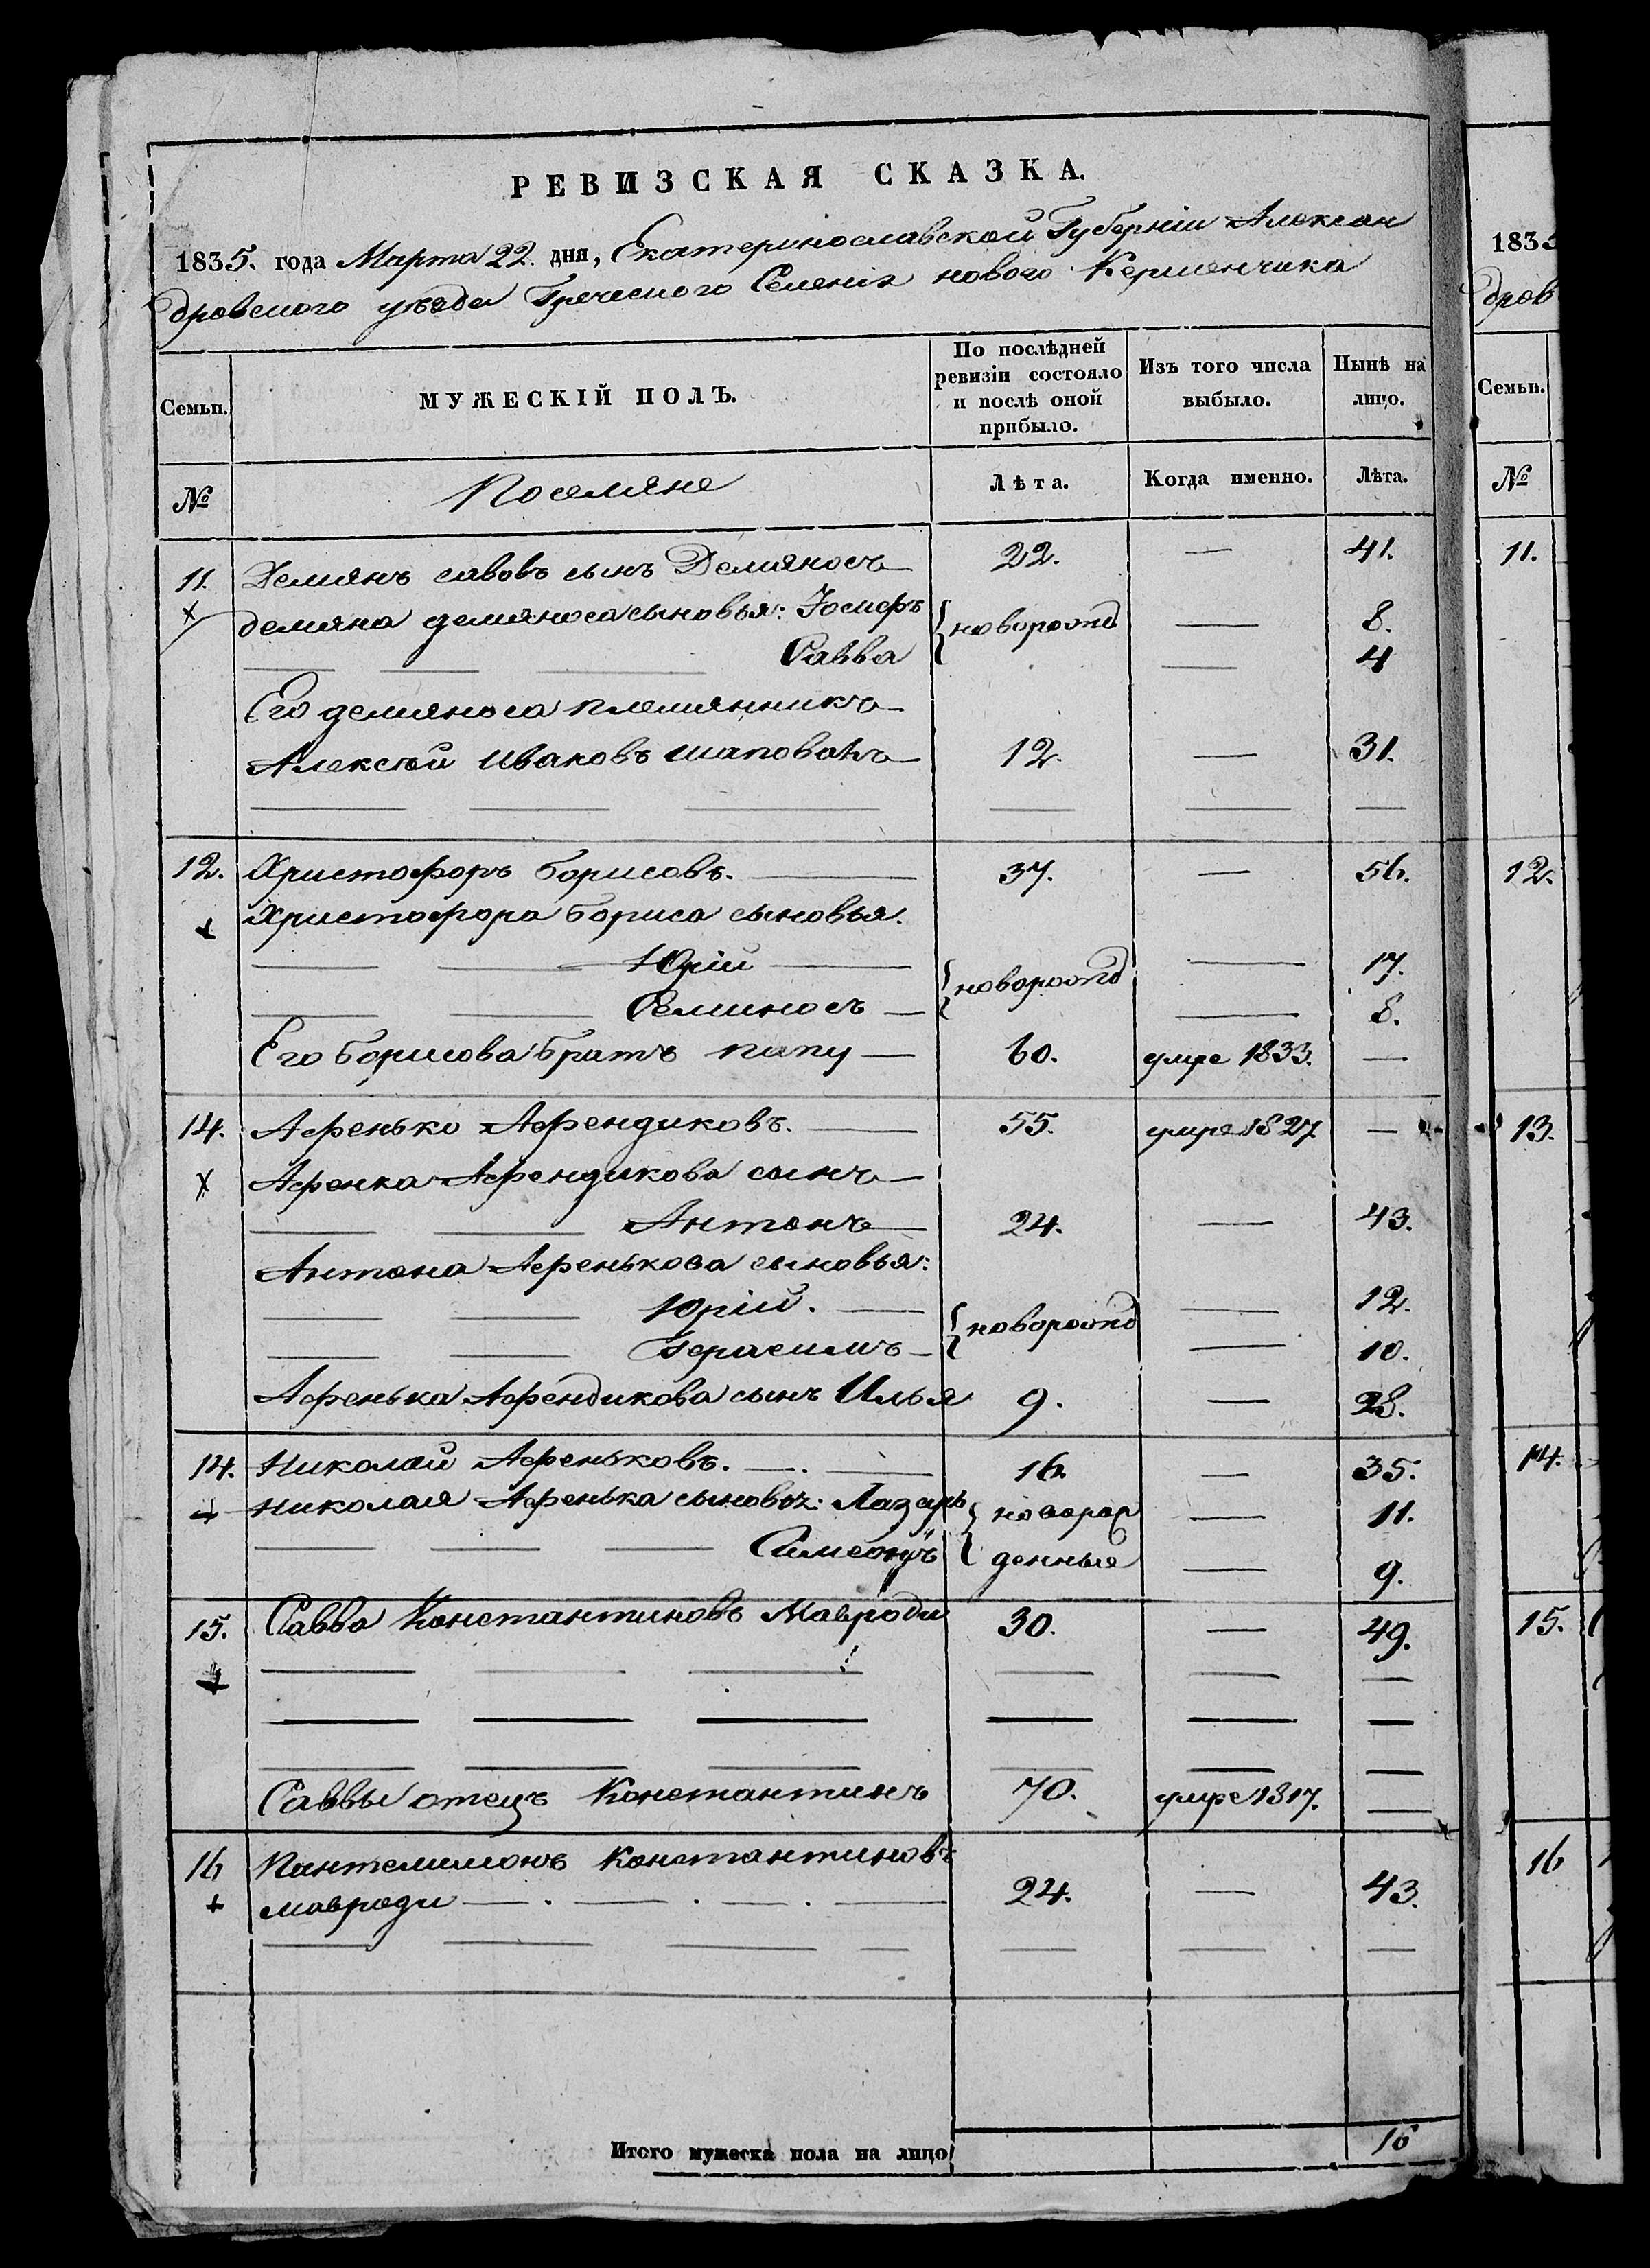 РЕВИЗСКАЯ СКАЗКА.
1835. года Марта 22. дня, Екатеринославской Губерніи Алексан
дровского уѣзда Греческого Селенія нового Керменчика
Семьи. МУЖЕСКІЙ ПОЛЪ. По послѣдней ревизіи состояло и послѣ оной прибыло. Изъ того числа выбыло. Нынѣ на лицо.
№ Поселяне Лѣта. Когда именно. Лѣта.
11. Демянъ савовъ сынъ Демяносъ 22. — 41.
демяна демяноса сыновья: Іосифъ новорожд — 8.
Савва — 4
Его демяноса племянникъ
Алексѣй Ивановъ шаповалъ 12. — 31.
12. Христофоръ борисовъ. 37. — 56.
Христофора бориса сыновья.
Юрій новорожд — 17.
Семиносъ — 8.
Его борисова братъ папу 60. умре 1833. —
14. Афенько Афендиковъ. 55. умре 1827. —
Афенка Афендикова сынъ
Антонъ 24. — 43.
Антона Афенькова сыновья:
Юрій. новорожд — 12.
Герасимъ — 10.
Афенька Афендикова сынъ Илья 9. — 28.
14. Николай Афеньковъ. 16. — 35.
Николая Афенька сыновья: Лазарь новорож — 11.
Симеонъ денные — 9.
15. Савва Константиновъ Мавроди 30. — 49.
Саввы отецъ Константинъ 70. умре 1817. —
16 Пантелимонъ Константиновъ
мавроди 24. — 43.
Итого мужеска пола на лицо 16
1835
дров
Семьи.
№
11.
12.
13.
14.
15.
16